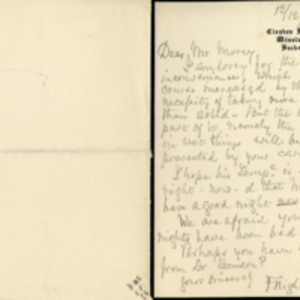 Claydon
Winslow
Bucks
Dear Mr Morey,
I am sorry for the
inconvenience, which
course
necessity of taking more
than cold - But the
part of it, namely the
in wet things will be
prevented by your care
I hope his Temp. is
right - now - & that
have a good night
We are afraid you
nights have been bad
Perhaps you have
from Dr. Benson?
yours sincerely